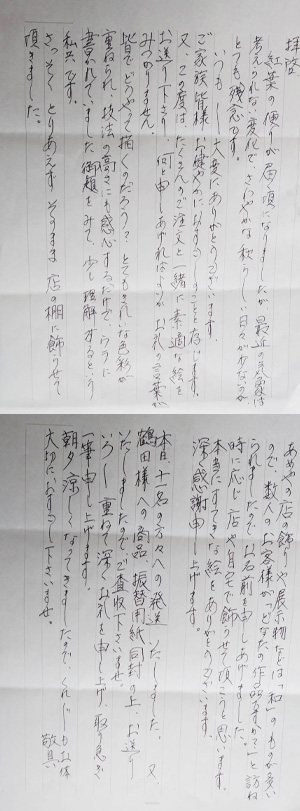 拝啓
紅葉の便りが届く頃になりましたが、最近の気象は
考えられない変化で、さわやかな秋らしい日々が少ないのが
とても残念です。
いつも 大変にありがとうございます。
ご家族皆様 お健やかにおすごしのことと存じます。
又、この度は、たくさんのご注文と一緒に素適な絵を
お送り下さり 何と申しあげればよいか お礼の言葉が
みつかりません。
皆でどうやって描くのだろう？とてもきれいな色彩が
重ねられ、技法の高さにも感心するだけで、うらに
書かれていました御題をみて、少し理解するという
私共です。
さっそく とりあえず そのまま 店の棚に飾らせて
頂きました。
あめやの店の飾りや展示物などは「和」のものが多い
ので、数人のお客様が「どなたの作品ですか？」と訪ね
られましたので お名前を申しあげました。
時に応じ 店や自宅で飾らせて頂こうと思います。
本当にすてきな絵をありがとうございます。
深く感謝申し上げます。
本日、十一名の方々への発送 いたしました。 又、
鶴田様への商品、振替用紙 同封の上、お送り
いたしましたのでご査収下さいませ。
いろいろ重ねて深くお礼を申し上げ、取り急ぎ
一筆申し上げます。
朝夕涼しくなってきましたので、くれぐれもお体
大切におすごし下さいませ。
敬具